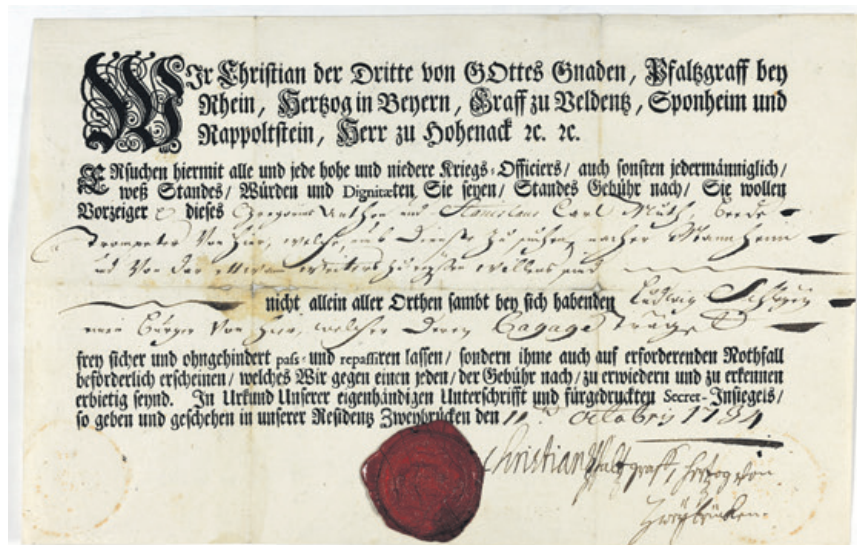 WIr Christian der Dritte von GOttes Gnaden, Pfaltzgraff bey
Rhein, Hertzog in Beyern, Graff zu Veldentz, Sponheim und
Rappoltstein, Herr zu Hohenack ꝛc. ꝛc.
ERsuchen hiermit alle und jede hohe und niedere Kriegs-Officiers/ auch sonsten jedermänniglich/
weß Standes/ Würden und Dignitæten Sie seyen/ Standes Gebühr nach/ Sie wollen
Vorzeiger dieses Stanislaus Carl Muth, beede
Trompeter von hier, welche umb Dienste zu suchen nacher Mannheim
und von dar weiters willens sind
nicht allein aller Orthen sambt bey sich habenden Ludwig
einen Bürger von hier, welcher deren Bagage träget
frey sicher und ohngehindert pass- und repassiren lassen/ sondern ihme auch auf erforderenden Nothfall
beförderlich erscheinen/ welches Wir gegen einen jeden/ der Gebühr nach/ zu erwiedern und zu erkennen
erbietig seynd. In Urkund Unserer eigenhändigen Unterschrifft und fürgedruckten Secret-Insiegels/
so geben und geschehen in unserer Residentz Zweybrücken den 11 octobris 1734
Christian Pfaltzgraff, hertzog von
Zweybrücken.